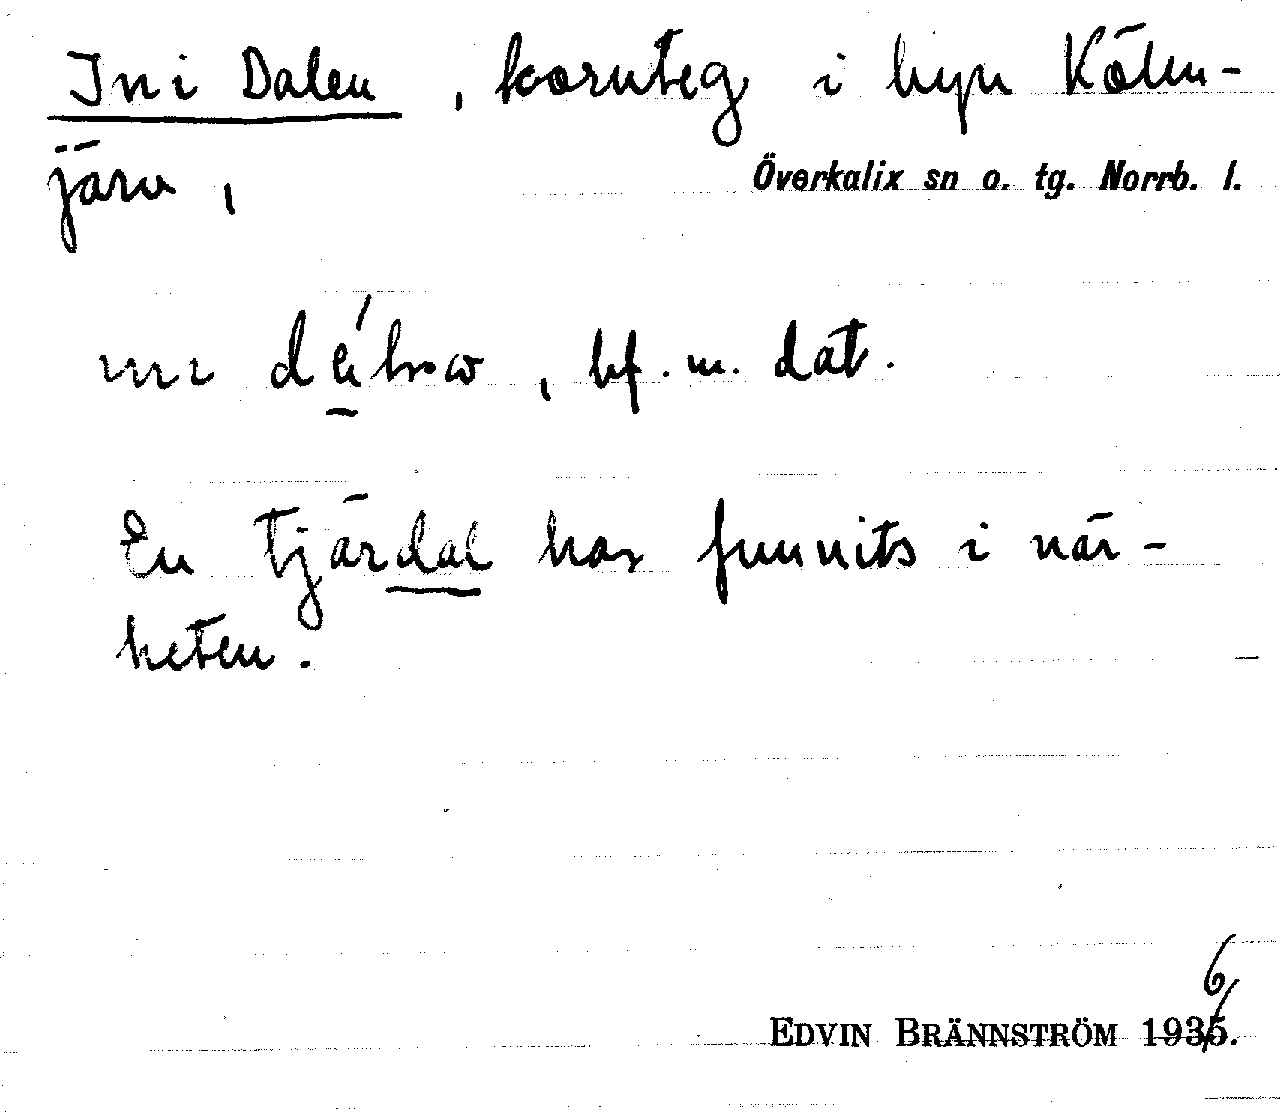 Ini Dalen, kornteg i byn Kölm-
järv,
Överkalix sn o. tg. Norrb. l.
bf. m. dat.
En tjärdal har funnits i när-
heten.
6
EDVIN BRÄNNSTRÖM 1935.